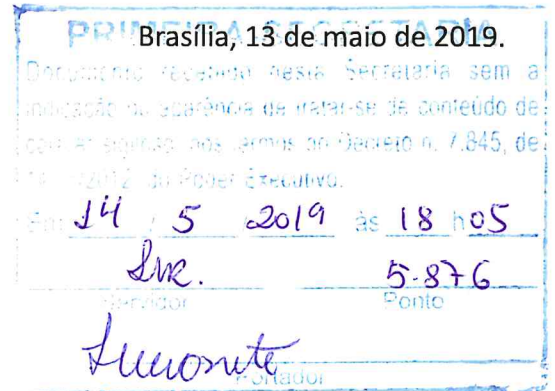 PRIMEIRA SECRETARIA
Brasília, 13 de maio de 2019.
Documento recebido nesta Secretaria sem a
indicação ou aparência de tratar-se de conteúdo de
caráter sigiloso, nos termos do Decreto n. 7.845, de
/2012, do Poder Executivo.
Em 14 / 5 / 2019 às 18 h 05
5.876
Servidor Ponto
Portador